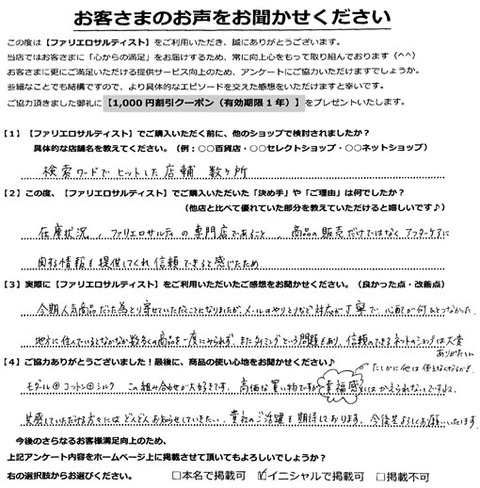 お客さまのお声をお聞かせください
この度は【ファリエロサルティスト】をご利用いただき、誠にありがとうございます。
当店ではお客さまに「心からの満足」をお届けするため、常に向上心をもって取り組んでおります（^^）
お客さまに更にご満足いただける提供サービス向上のため、アンケートにご協力いただけますでしょうか。
些細なことでも結構ですので、より具体的なエピソードを交えた感想をいただけますと幸いです。
ご協力頂きました御礼に【1,000円割引クーポン（有効期限1年）】をプレゼントいたします。
【1】【ファリエロサルティスト】でご購入いただく前に、他のショップで検討されましたか？
具体的な店舗名を教えてください。（例：〇〇百貨店・〇〇セレクトショップ・〇〇ネットショップ）
検索ワードでヒットした店舗 数ヶ所
【2】この度、【ファリエロサルティスト】でご購入いただいた「決め手」や「ご理由」は何でしたか？
（他店と比べて優れていた部分を教えていただけると嬉しいです♪）
在庫状況、ファリエロサルティの専門店であること、商品の販売だけではなく アフターケアに
関する情報も提供してくれ 信頼できると感じたため
【3】実際に【ファリエロサルティスト】をご利用いただいたご感想をお聞かせください。（良かった点・改善点）
今期人気商品だった為とり寄せていただくことになりましたが、メールのやりとりなど対応が丁寧で、心配が何ひとつなかった。
地方に住んでいるとなかなか数多くの商品を一度にみられず、またタイミングという問題もあり、信頼のできるネットのショップは大変
ありがたい
【4】ご協力ありがとうございました！最後に、商品の使い心地をお聞かせください♪
たしかに他は使えなくなるかも
モダール⊕コットン⊕シルク この組み合わせが大好きです。高価な買い物ですが 幸福感 にはかえられないですよね。
共感していただける方々には どんどんお知らせしていきたい。貴社のご活躍を期待しております。今後共よろしくお願いいたします。
今後のさらなるお客様満足向上のため、
上記アンケート内容をホームページ上に掲載させて頂いてもよろしいでしょうか？
右の選択肢からお選びください。 □本名で掲載可 ☑イニシャルで掲載可 □掲載不可